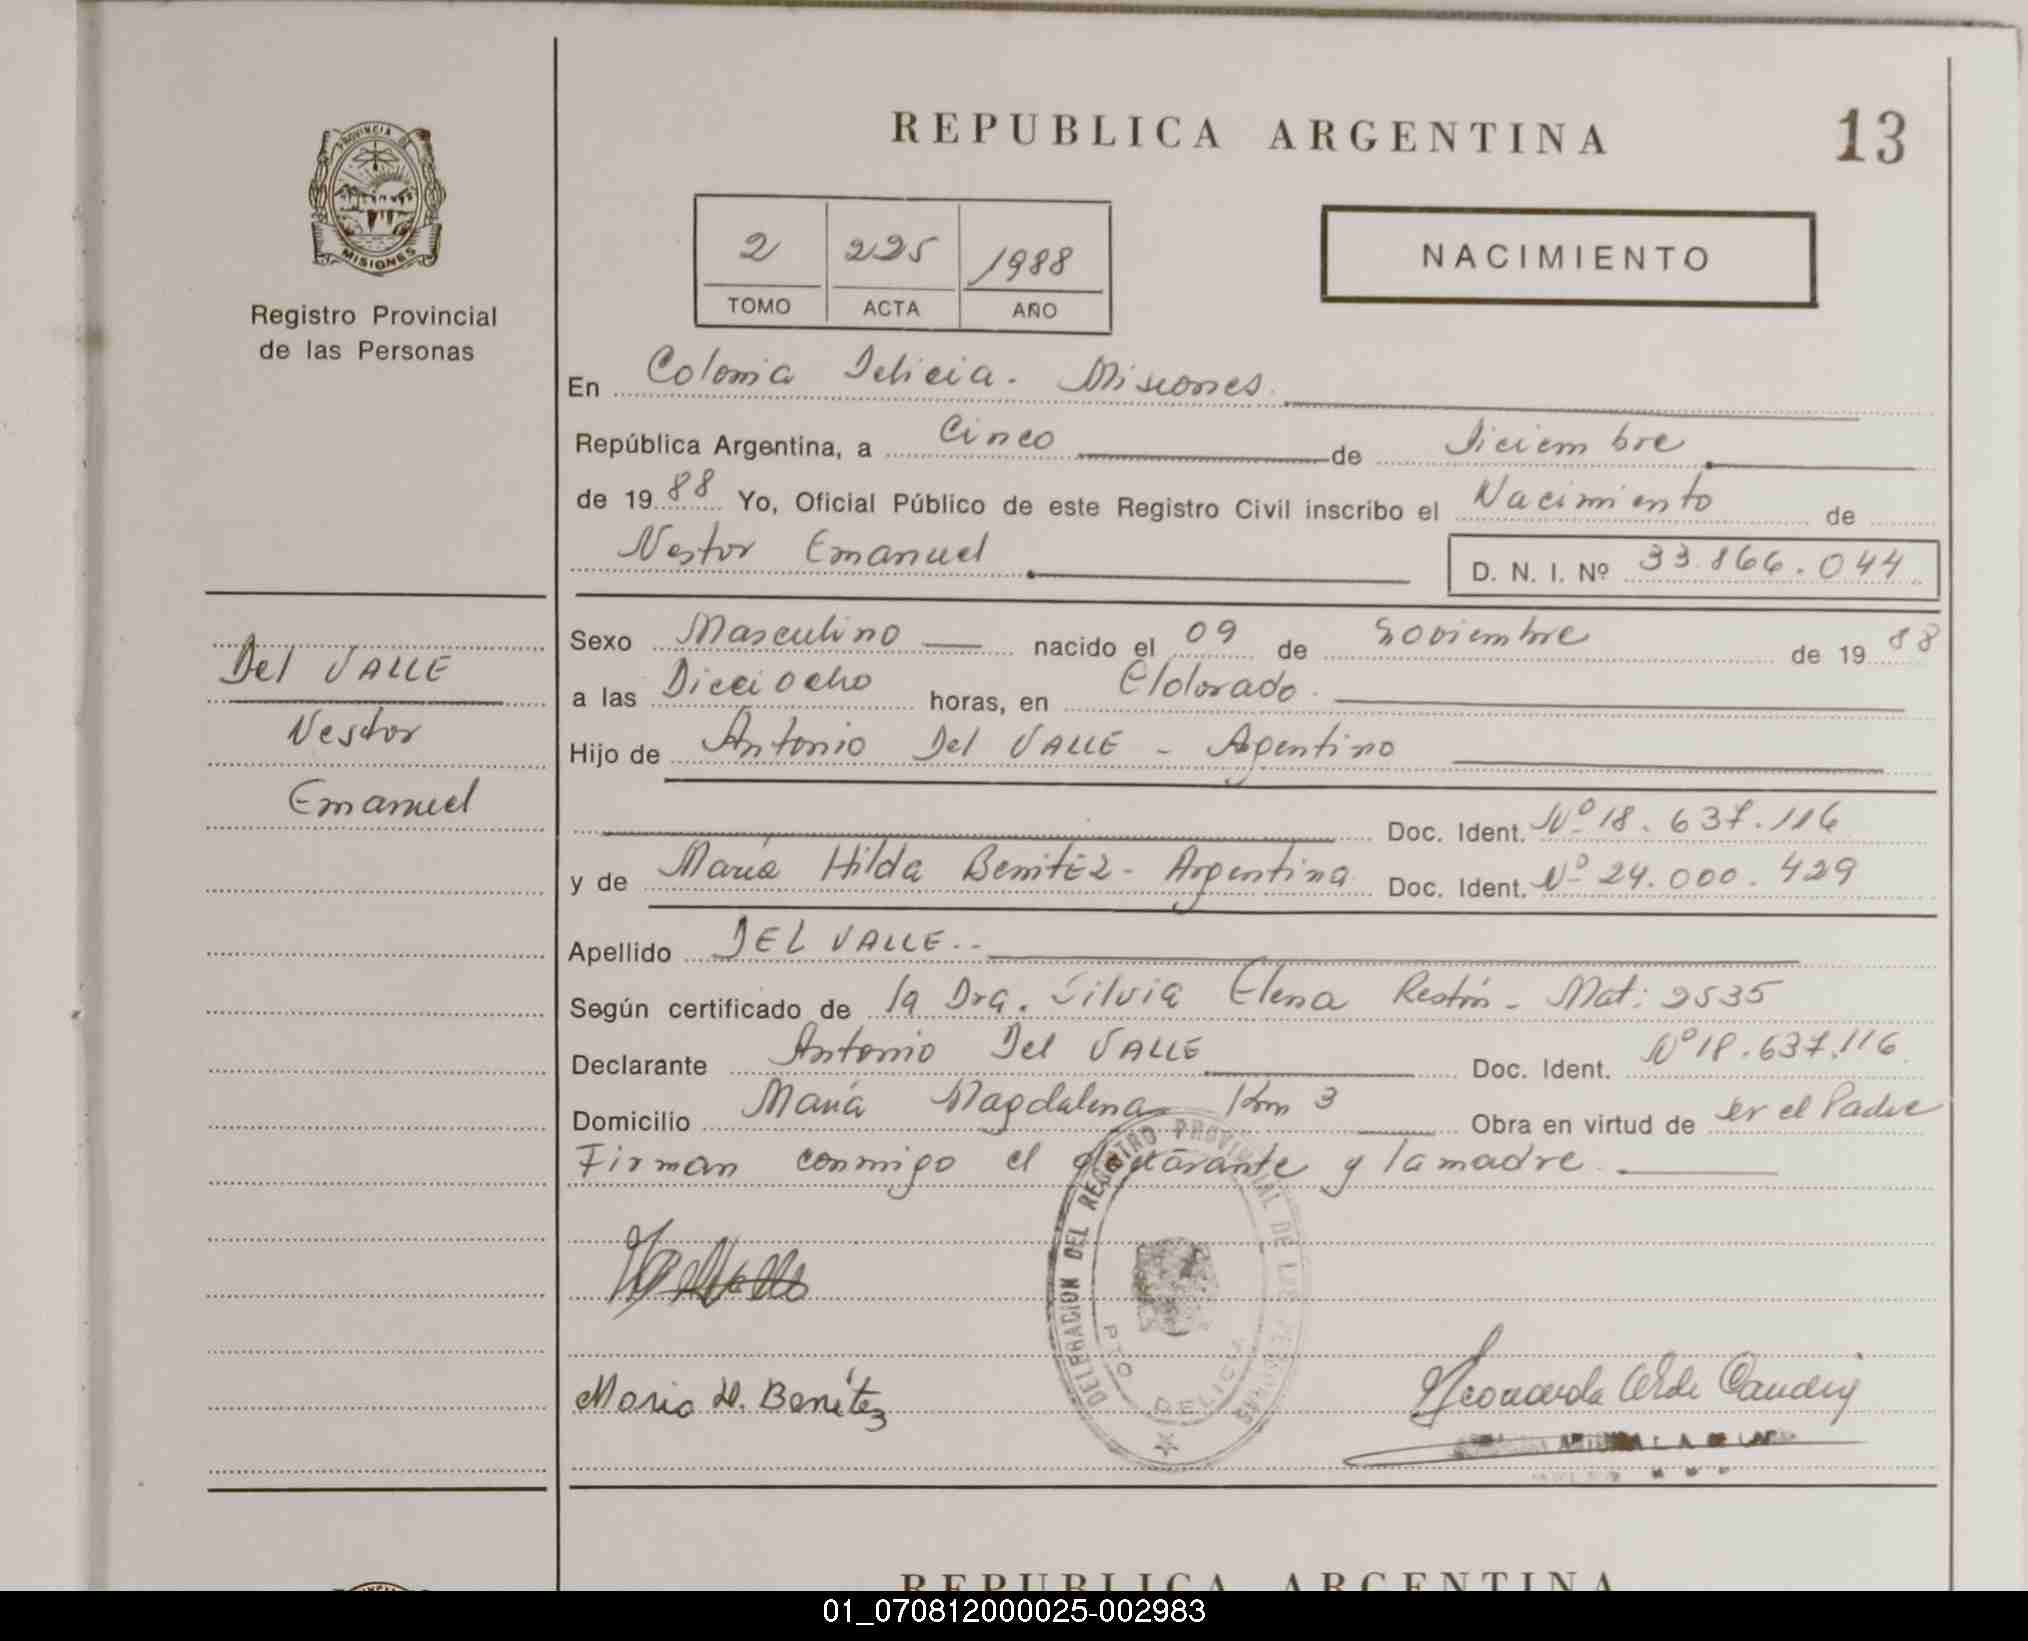 REPUBLICA ARGENTINA
13
PROVINCIA DE
MISIONES
Registro Provincial
de las Personas
2 225 1988
TOMO ACTA AÑO
NACIMIENTO
En Colonia Delicia. Misiones.
República Argentina, a Cinco de Diciembre
de 1988 Yo, Oficial Público de este Registro Civil inscribo el Nacimiento de
Nestor Emanuel D. N. I. Nº 33.866.044
Sexo Masculino nacido el 09 de Noviembre de 1988
a las Dieciocho horas, en Eldorado.
Hijo de Antonio Del VALLE - Agentino
Doc. Ident. Nº 18.637.116
y de María Hilda Benitez - Argentina Doc. Ident. Nº 24.000.429
Apellido DEL VALLE..
Según certificado de la Dra. Silvia Elena Restón - Mat: 2535
Declarante Antonio Del VALLE Doc. Ident. Nº 18.637.116
Domicilio María Magdalena Km 3 Obra en virtud de ser el Padre
Firman conmigo el declarante y la madre.
Del VALLE
Nestor
Emanuel
DELEGACION DEL REGISTRO PROVINCIAL DE LAS PERSONAS
PTO DELICIA
Maria H. Benítez
REPUBLICA ARGENTINA
01_070812000025-002983